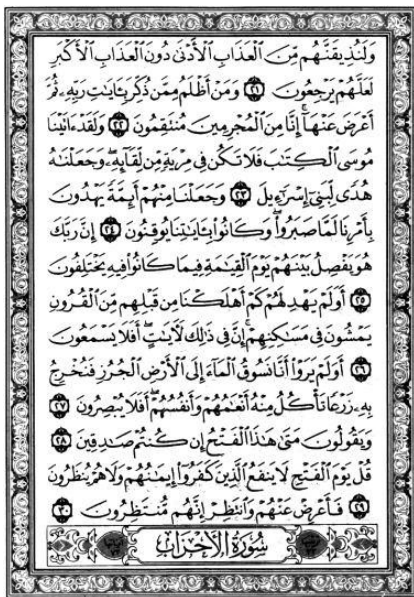 وَلَنُذِيقَنَّهُم مِّنَ ٱلْعَذَابِ ٱلْأَدْنَىٰ دُونَ ٱلْعَذَابِ ٱلْأَكْبَرِ
لَعَلَّهُمْ يَرْجِعُونَ ٢١ وَمَنْ أَظْلَمُ مِمَّن ذُكِّرَ بِـَٔايَٰتِ رَبِّهِۦ ثُمَّ
أَعْرَضَ عَنْهَآ إِنَّا مِنَ ٱلْمُجْرِمِينَ مُنتَقِمُونَ ٢٢ وَلَقَدْ ءَاتَيْنَا
مُوسَى ٱلْكِتَٰبَ فَلَا تَكُن فِى مِرْيَةٍ مِّن لِّقَآئِهِۦ وَجَعَلْنَٰهُ
هُدًى لِّبَنِىٓ إِسْرَٰٓءِيلَ ٢٣ وَجَعَلْنَا مِنْهُمْ أَئِمَّةً يَهْدُونَ
بِأَمْرِنَا لَمَّا صَبَرُوا۟ وَكَانُوا۟ بِـَٔايَٰتِنَا يُوقِنُونَ ٢٤ إِنَّ رَبَّكَ
هُوَ يَفْصِلُ بَيْنَهُمْ يَوْمَ ٱلْقِيَٰمَةِ فِيمَا كَانُوا۟ فِيهِ يَخْتَلِفُونَ
٢٥ أَوَلَمْ يَهْدِ لَهُمْ كَمْ أَهْلَكْنَا مِن قَبْلِهِم مِّنَ ٱلْقُرُونِ
يَمْشُونَ فِى مَسَٰكِنِهِمْ إِنَّ فِى ذَٰلِكَ لَـَٔايَٰتٍ أَفَلَا يَسْمَعُونَ
٢٦ أَوَلَمْ يَرَوْا۟ أَنَّا نَسُوقُ ٱلْمَآءَ إِلَى ٱلْأَرْضِ ٱلْجُرُزِ فَنُخْرِجُ
بِهِۦ زَرْعًا تَأْكُلُ مِنْهُ أَنْعَٰمُهُمْ وَأَنفُسُهُمْ أَفَلَا يُبْصِرُونَ ٢٧
وَيَقُولُونَ مَتَىٰ هَٰذَا ٱلْفَتْحُ إِن كُنتُمْ صَٰدِقِينَ ٢٨
قُلْ يَوْمَ ٱلْفَتْحِ لَا يَنفَعُ ٱلَّذِينَ كَفَرُوٓا۟ إِيمَٰنُهُمْ وَلَا هُمْ يُنظَرُونَ
٢٩ فَأَعْرِضْ عَنْهُمْ وَٱنتَظِرْ إِنَّهُم مُّنتَظِرُونَ ٣٠
سُورَةُ ٱلْأَحْزَابِ